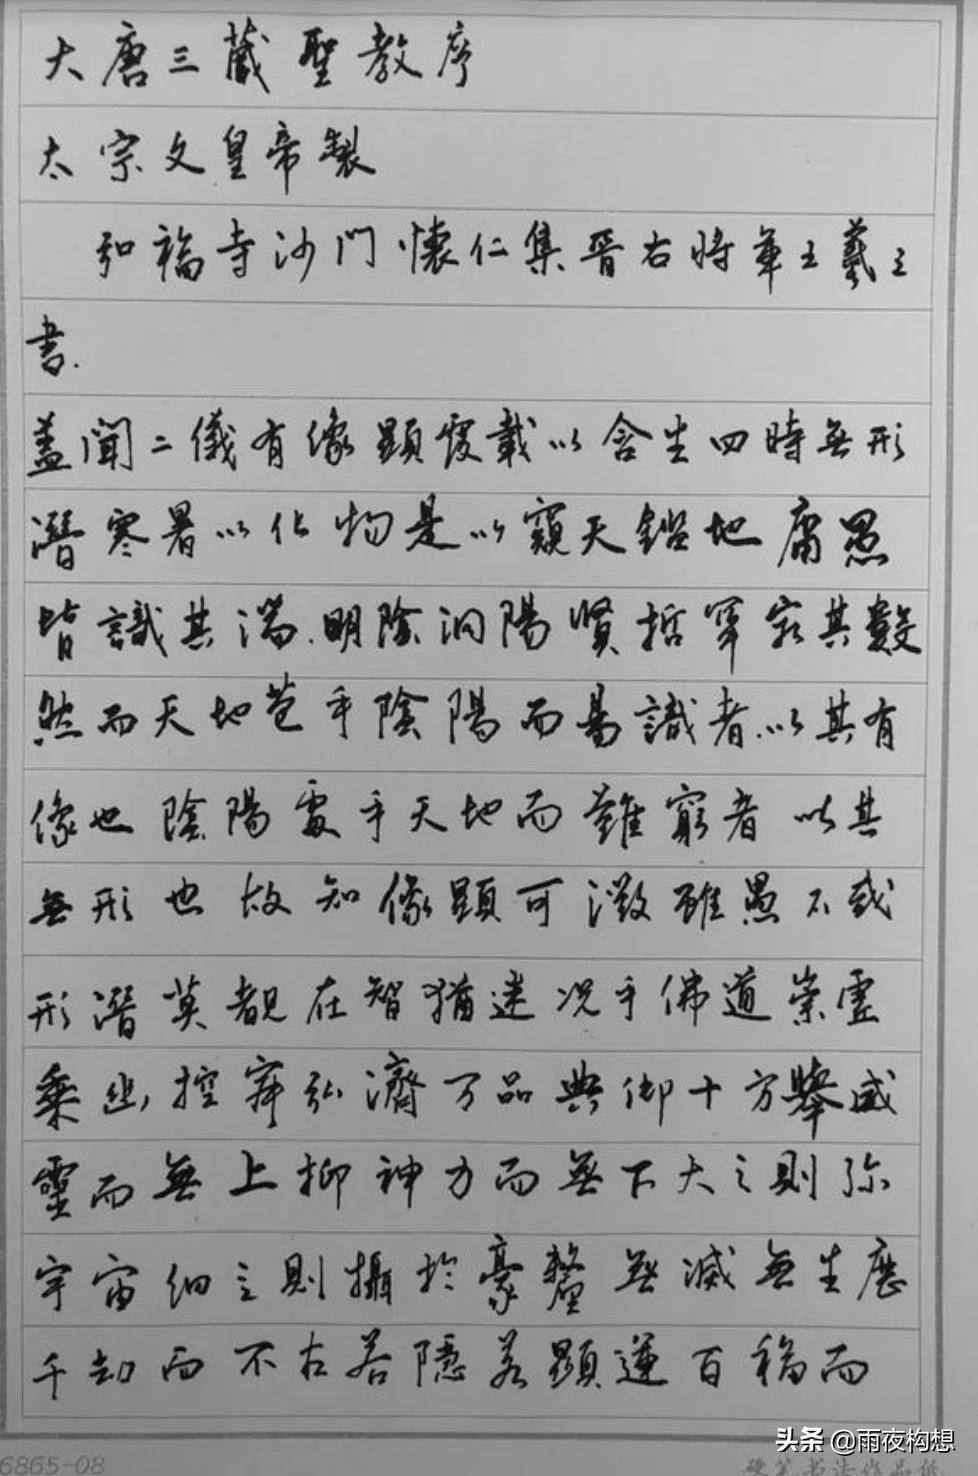 大唐三藏聖教序
太宗文皇帝製
弘福寺沙門懷仁集晉右將軍王羲之
書
蓋聞二儀有像顯覆載以含生四時無形
潛寒暑以化物是以窺天鑑地庸愚
皆識其端明陰洞陽賢哲罕窮其數
然而天地苞乎陰陽而易識者以其有
像也陰陽處乎天地而難窮者以其
無形也故知像顯可徵雖愚不惑
形潛莫覩在智猶迷況乎佛道崇虛
乘幽控寂弘濟万品典御十方舉威
靈而無上抑神力而無下大之則彌
宇宙細之則攝於豪釐無滅無生歷
千劫而不古若隱若顯運百福而
头条 @雨夜构想
6865-08
硬笔书法作品纸